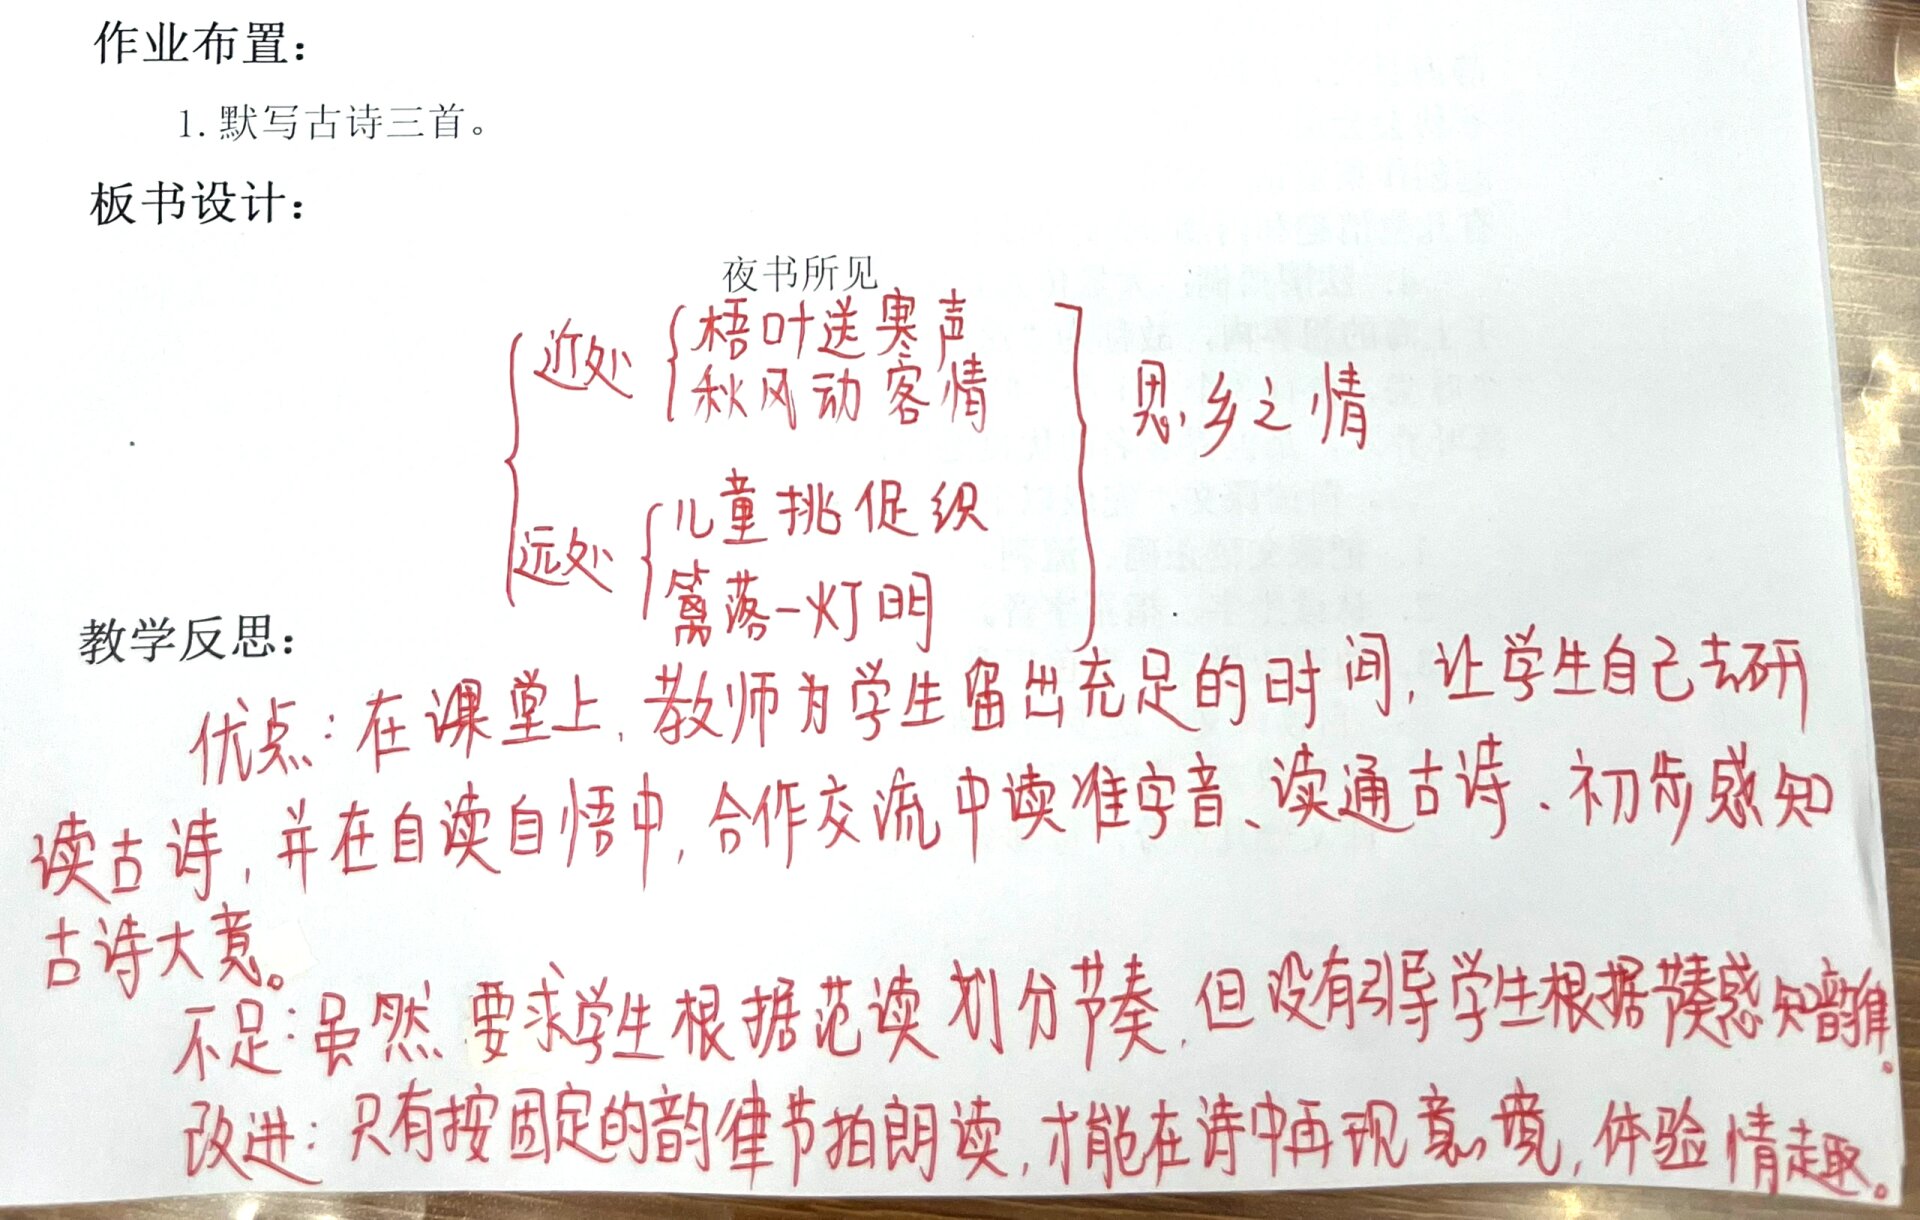 作业布置：
1. 默写古诗三首。
板书设计：
夜书所见
近处
梧叶送寒声
秋风动客情
思乡之情
远处
儿童挑促织
篱落一灯明
教学反思：
优点：在课堂上，教师为学生留出充足的时间，让学生自己去研
读古诗，并在自读自悟中，合作交流中读准字音、读通古诗、初步感知
古诗大意。
不足：虽然要求学生根据范读划分节奏，但没有引导学生根据节奏感知韵律。
改进：只有按固定的韵律节拍朗读，才能在诗中再现意境，体验情趣。